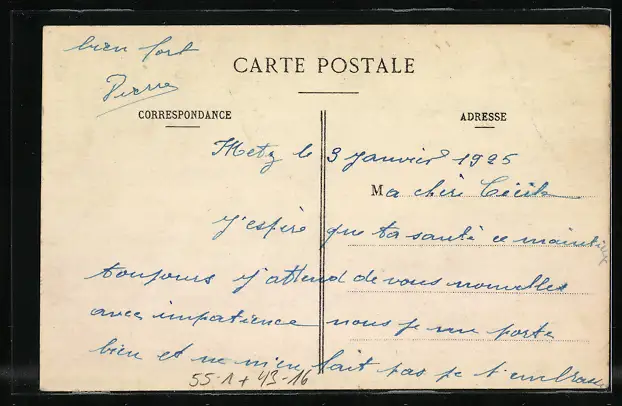 bien fort
Pierre
CARTE POSTALE
CORRESPONDANCE
ADRESSE
Metz le 3 janvier 1925
Ma chère Cécile
J'espère que ta santé ce maintien
toujours j'attend de vous nouvelles
avec impatience nous je me porte
bien et ne m'en fait pas je t'embrasse
55-1 + 43-16